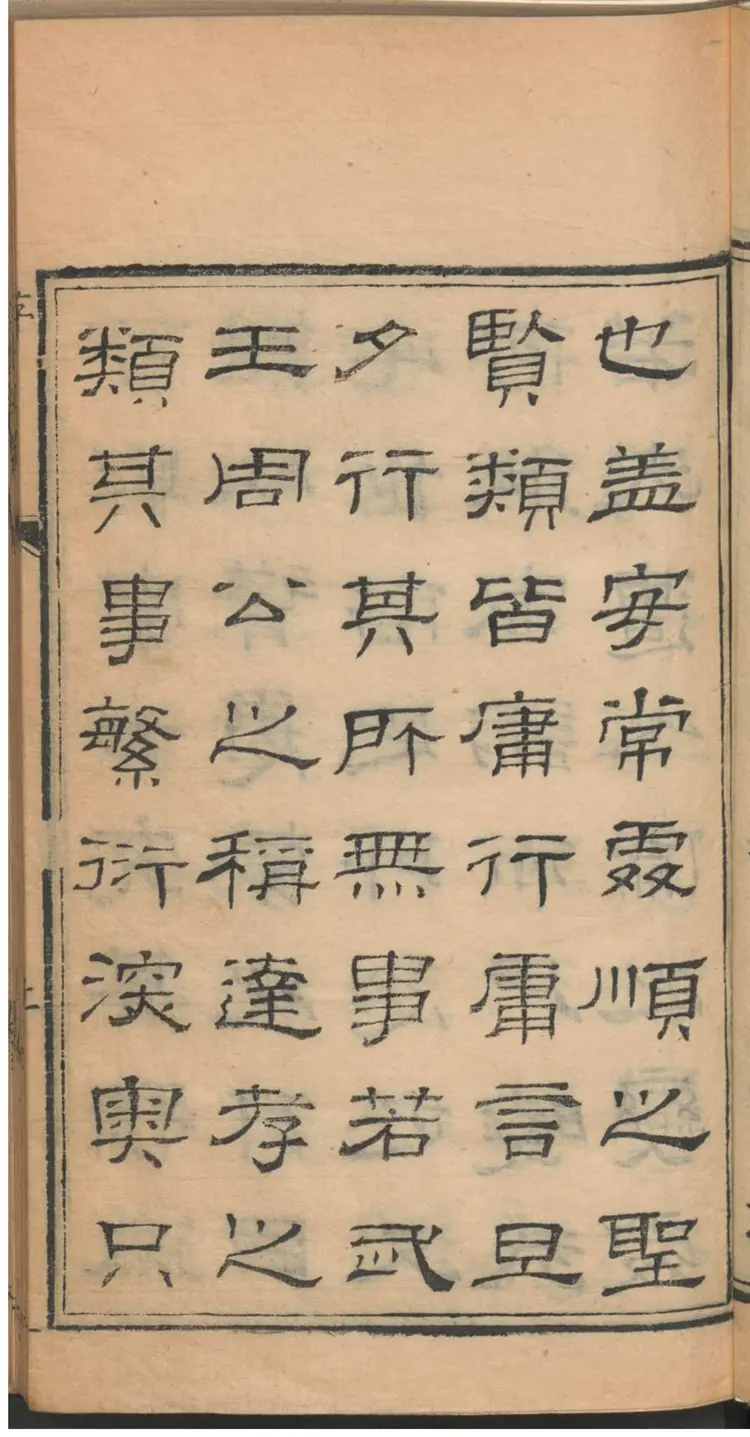 也盖安常處順之聖
賢類皆庸行庸言旦
夕行其所無事若武
王周公之稱達孝之
類其事繁衍深奧只